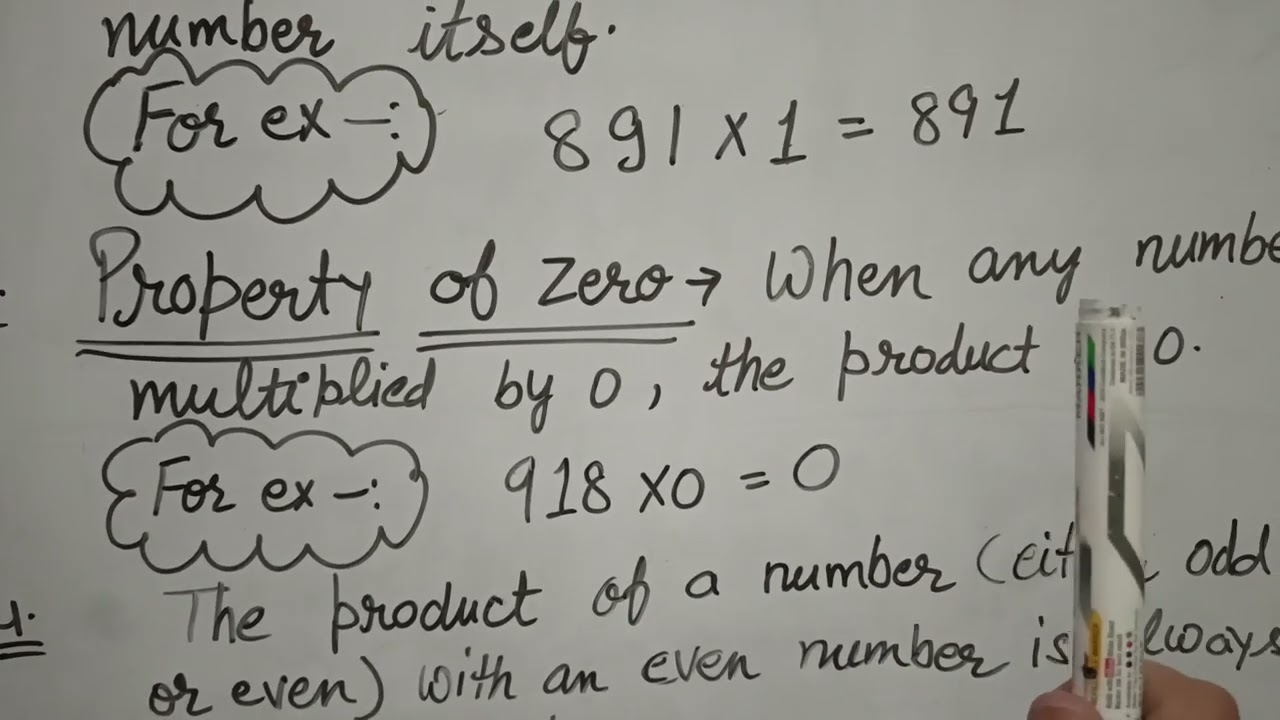 number itself.
For ex -: 891 x 1 = 891
Property of Zero → When any numbe
multiplied by 0, the product 0.
For ex -: 918 x 0 = 0
4. The product of a number (eit odd
or even) with an even number is lways